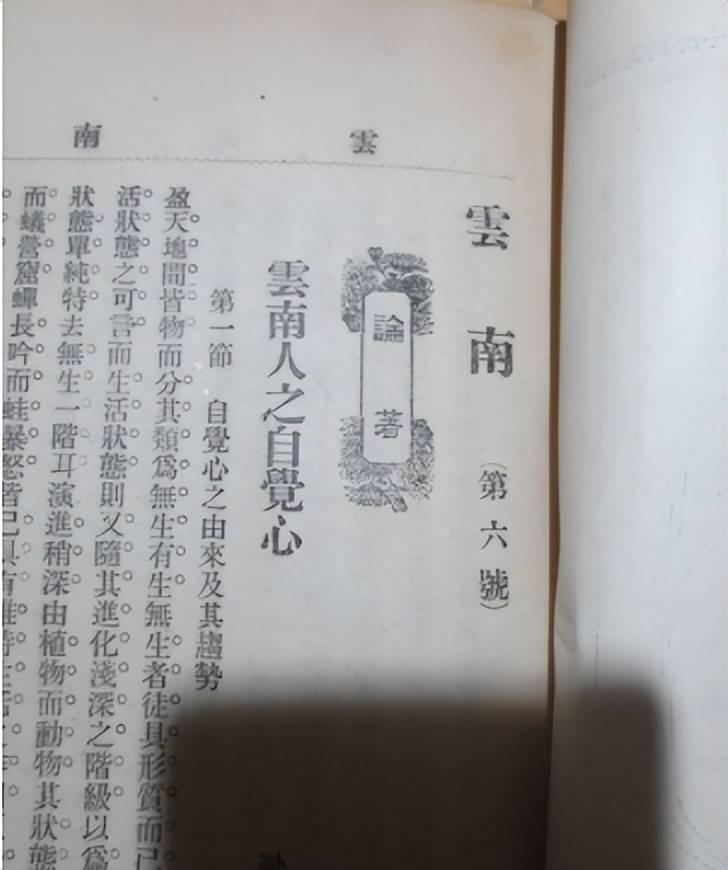 雲南
雲南 （第六號）
論著
雲南人之自覺心
第一節 自覺心之由來及其趨勢
盈天地間皆物而分其類爲無生有生無生者徒具形質而已
活狀態之可言而生活狀態則又隨其進化淺深之階級以爲
狀態單純特去無生一階耳演進稍深由植物而動物其狀態
而蟻營窟蟬長吟而蛙暴怒皆已具有維持生活之